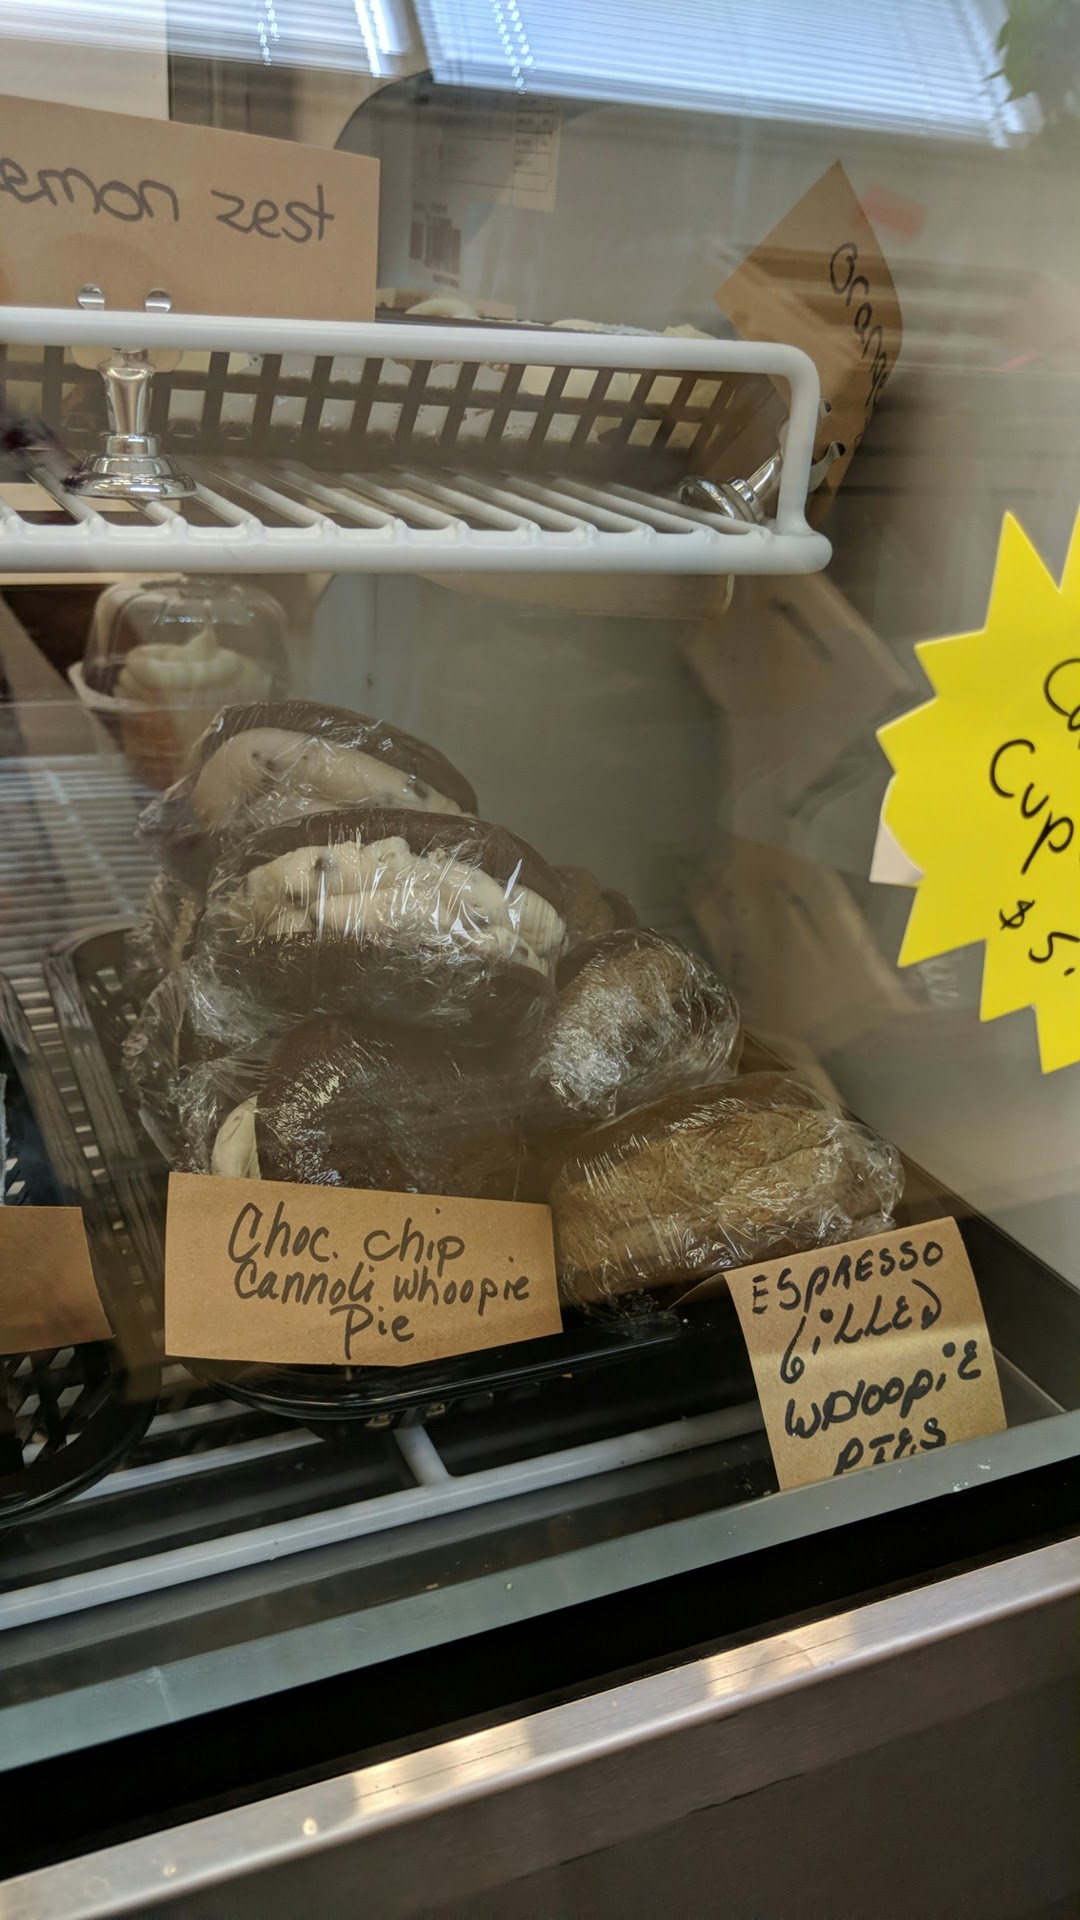 emon zest
Orange
Cup
$5.
Choc. chip
Cannoli whoopie
Pie
ESPRESSO
fiLLED
WHOOPiE
PIES